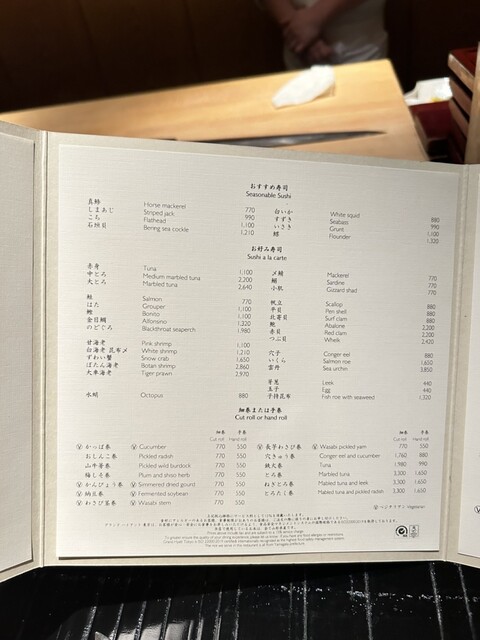 おすすめ寿司
Seasonable Sushi
真鯵 Horse mackerel 770
しまあじ Striped jack 990
こち Flathead 1,100
石垣貝 Bering sea cockle 1,210
白いか White squid 880
すずき Seabass 990
いさき Grunt 1,100
Flounder 1,320
お好み寿司
Sushi a la carte
赤身 Tuna 1,100
中とろ Medium marbled tuna 2,200
大とろ Marbled tuna 2,640
〆鯖 Mackerel 770
鰯 Sardine 770
小肌 Gizzard shad 770
鮭 Salmon 770
はた Grouper 1,100
鰹 Bonito 1,100
金目鯛 Alfonsino 1,320
のどぐろ Blackthroat seabass 1,980
帆立 Scallop 880
平貝 Pen shell 880
北寄貝 Surf clam 880
鮑 Abalone 2,200
赤貝 Red clam 2,200
つぶ貝 Whelk 2,420
甘海老 Pink shrimp 1,100
白海老 昆布〆 White shrimp 1,210
ずわい蟹 Snow crab 1,650
ぼたん海老 Botan shrimp 2,860
大車海老 Tiger prawn 2,970
穴子 Conger eel 880
いくら Salmon roe 1,650
雲丹 Sea urchin 3,850
水蛸 Octopus 880
芽葱 Leek 440
玉子 Egg 440
子持昆布 Fish roe with seaweed 1,320
細巻または手巻
Cut roll or hand roll
細巻 手巻 細巻 手巻
Cut roll Hand roll Cut roll Hand roll
Ⓥ かっぱ巻 Ⓥ Cucumber 770 550
おしんこ巻 Pickled radish 770 550
山牛蒡巻 Pickled wild burdock 770 550
梅しそ巻 Plum and shiso herb 770 550
Ⓥ かんぴょう巻 Ⓥ Simmered dried gourd 770 550
Ⓥ 納豆巻 Ⓥ Fermented soybean 770 550
Ⓥ わさび茎巻 Ⓥ Wasabi stem 770 550
Ⓥ 長芋わさび巻 Ⓥ Wasabi pickled yam 770 550
穴きゅう巻 Conger eel and cucumber 1,760 880
鉄火巻 Tuna 1,980 990
とろ巻 Marbled tuna 3,300 1,650
ねぎとろ巻 Marbled tuna and leek 3,300 1,650
とろたく巻 Marbled tuna and pickled radish 3,300 1,650
Ⓥ ベジタリアン Vegetarian